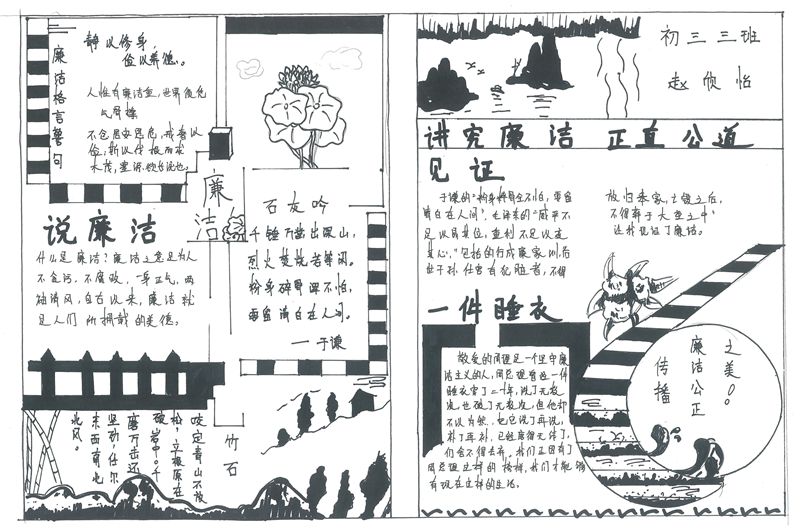 廉洁格言警句
静以修身,
俭以养德。
人惟有廉洁直,世界便允
不念居安思危,戒奢以
俭;斯以伐根而求
木茂,塞源
廉洁
石灰吟
千锤万凿出深山,
烈火焚烧若等闲。
粉身碎骨浑不怕,
要留清白在人间。
——于谦
说廉洁
什么是廉洁?廉洁之意是为人
不贪污,不腐败,一身正气,两
袖清风,自古以来,廉洁就
是人们所拥戴的美德。
竹石
咬定青山不放
松,立根原在
破岩中。千
磨万击还
坚劲,任尔
东西南北
风。
初三三班
赵欣怡
讲究廉洁 正直公道
见证
于谦的“粉身碎骨全不怕,要留
清白在人间”,毛泽东的“威平不
足以易其位,重利不足以变
其心,”包括的
仕宦有犯赃者,不得
放归本家,亡殁之后,
不得葬于大茔之中”
这都见证了廉洁。
一件睡衣
敬爱的周总理是一个坚守廉
洁主义的人,周总理曾经一件
睡衣穿了二十年,洗了无数
次也破了无数次,但他却
不以为然,
补了再补,已经磨得无绒了,
们舍不得丢弃,我们正因有了
周总理这样的榜样,我们才能够
有现在这样的生活。
传播
廉洁公正
之美!。